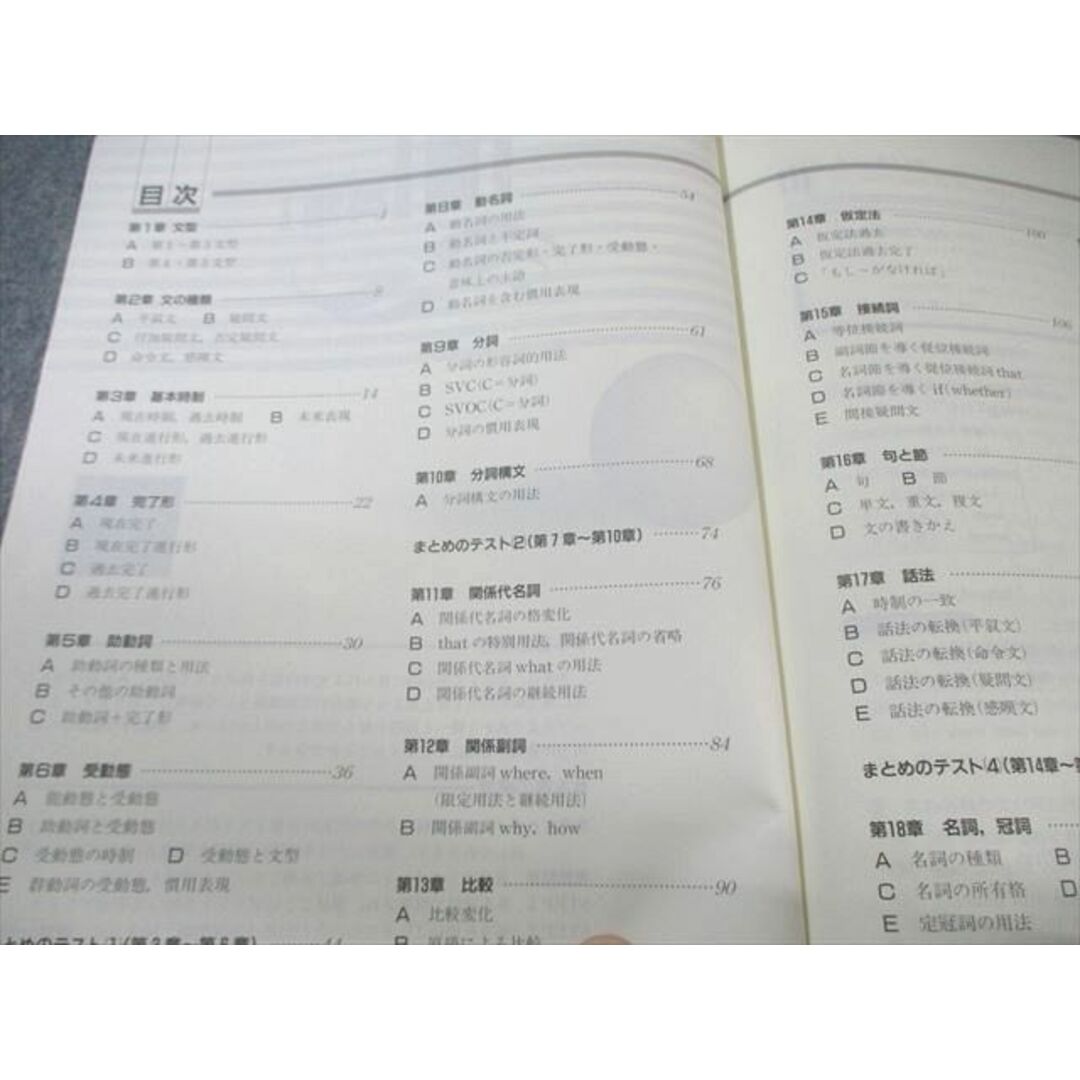 目次
第1章 文型 1
A 第1～第3文型
B 第4・第5文型
第2章 文の種類 8
A 平叙文 B 疑問文
C 付加疑問文，否定疑問文
D 命令文，感嘆文
第3章 基本時制 14
A 現在時制，過去時制 B 未来表現
C 現在進行形，過去進行形
D 未来進行形
第4章 完了形 22
A 現在完了
B 現在完了進行形
C 過去完了
D 過去完了進行形
第5章 助動詞 30
A 助動詞の種類と用法
B その他の助動詞
C 助動詞＋完了形
第6章 受動態 36
A 能動態と受動態
B 助動詞と受動態
C 受動態の時制 D 受動態と文型
E 群動詞の受動態，慣用表現
とめのテスト1(第3章～第6章) 44
第8章 動名詞 54
A 動名詞の用法
B 動名詞と不定詞
C 動名詞の否定形・完了形・受動態・
意味上の主語
D 動名詞を含む慣用表現
第9章 分詞 61
A 分詞の形容詞的用法
B SVC(C＝分詞)
C SVOC(C＝分詞)
D 分詞の慣用表現
第10章 分詞構文 68
A 分詞構文の用法
まとめのテスト2(第7章～第10章) 74
第11章 関係代名詞 76
A 関係代名詞の格変化
B thatの特別用法，関係代名詞の省略
C 関係代名詞whatの用法
D 関係代名詞の継続用法
第12章 関係副詞 84
A 関係副詞where，when
(限定用法と継続用法)
B 関係副詞why，how
第13章 比較 90
A 比較変化
B 原級による比較
第14章 仮定法 100
A 仮定法過去
B 仮定法過去完了
C 「もし～がなければ」
第15章 接続詞 106
A 等位接続詞
B 副詞節を導く従位接続詞
C 名詞節を導く従位接続詞that
D 名詞節を導くif(whether)
E 間接疑問文
第16章 句と節
A 句 B 節
C 単文，重文，複文
D 文の書きかえ
第17章 話法
A 時制の一致
B 話法の転換(平叙文)
C 話法の転換(命令文)
D 話法の転換(疑問文)
E 話法の転換(感嘆文)
まとめのテスト4(第14章～第
第18章 名詞，冠詞
A 名詞の種類 B
C 名詞の所有格 D
E 定冠詞の用法